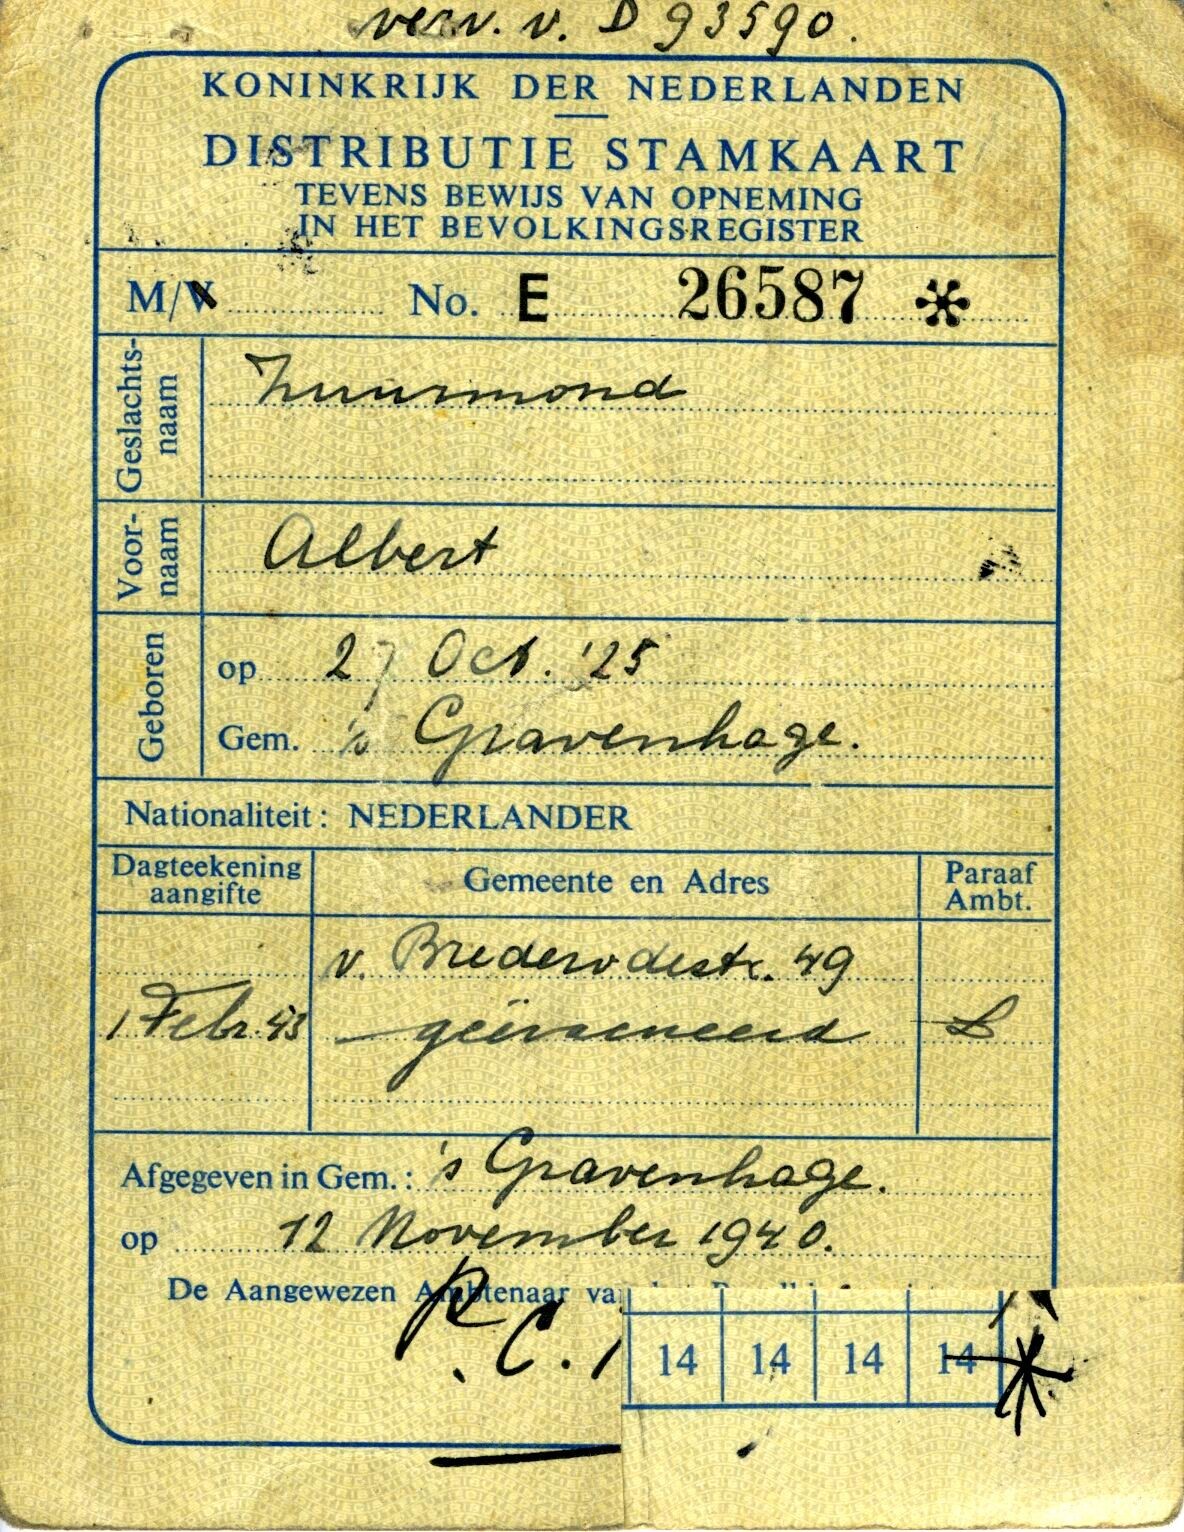 verv. v. D 93590.
KONINKRIJK DER NEDERLANDEN
DISTRIBUTIE STAMKAART
TEVENS BEWIJS VAN OPNEMING
IN HET BEVOLKINGSREGISTER
M/V No. E 26587 *
Geslachts-
naam
Zuurmond
Voor-
naam
Albert
Geboren
op 27 Oct. '25
Gem. 's Gravenhage.
Nationaliteit: NEDERLANDER
Dagteekening
aangifte
Gemeente en Adres
Paraaf
Ambt.
v. Brederodestr. 49
1 Febr. 43 geëvacueerd
Afgegeven in Gem.: 's Gravenhage.
op 12 November 1940.
De Aangewezen Ambtenaar va
R.C.
14 14 14 14